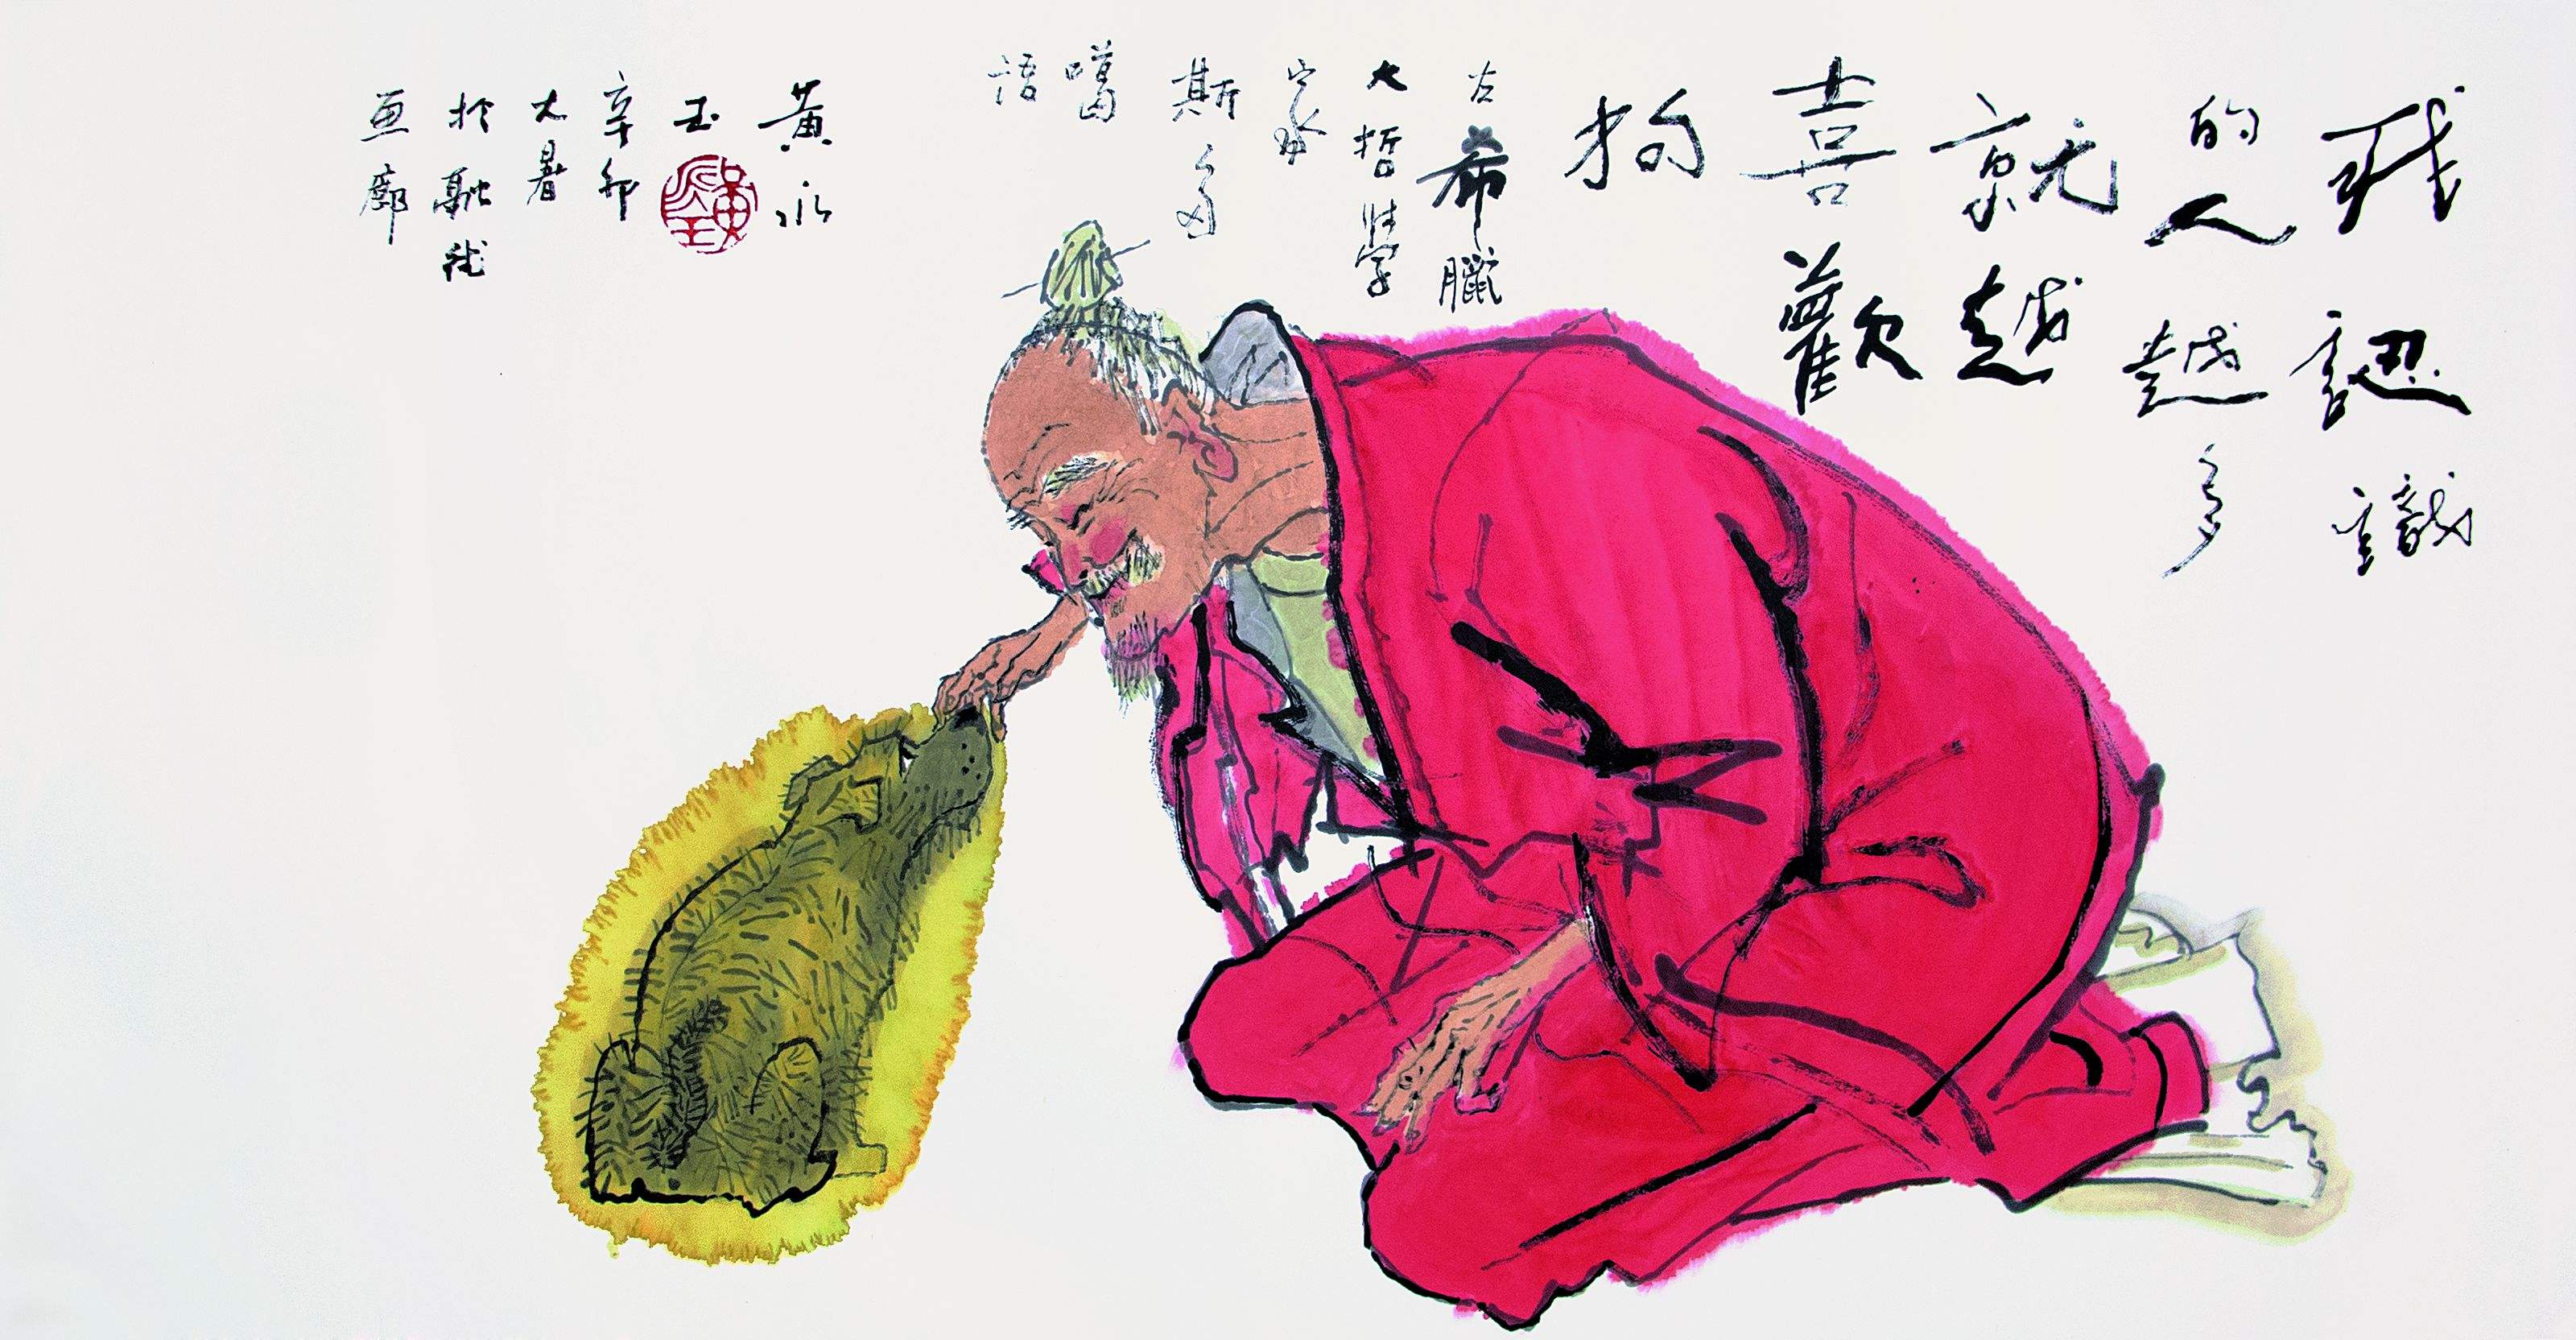 我認識
的人越多
就越
喜歡
狗
古希臘
大哲學
家
斯多
噶
語
黃永
玉
辛卯
大暑
於融
画廊